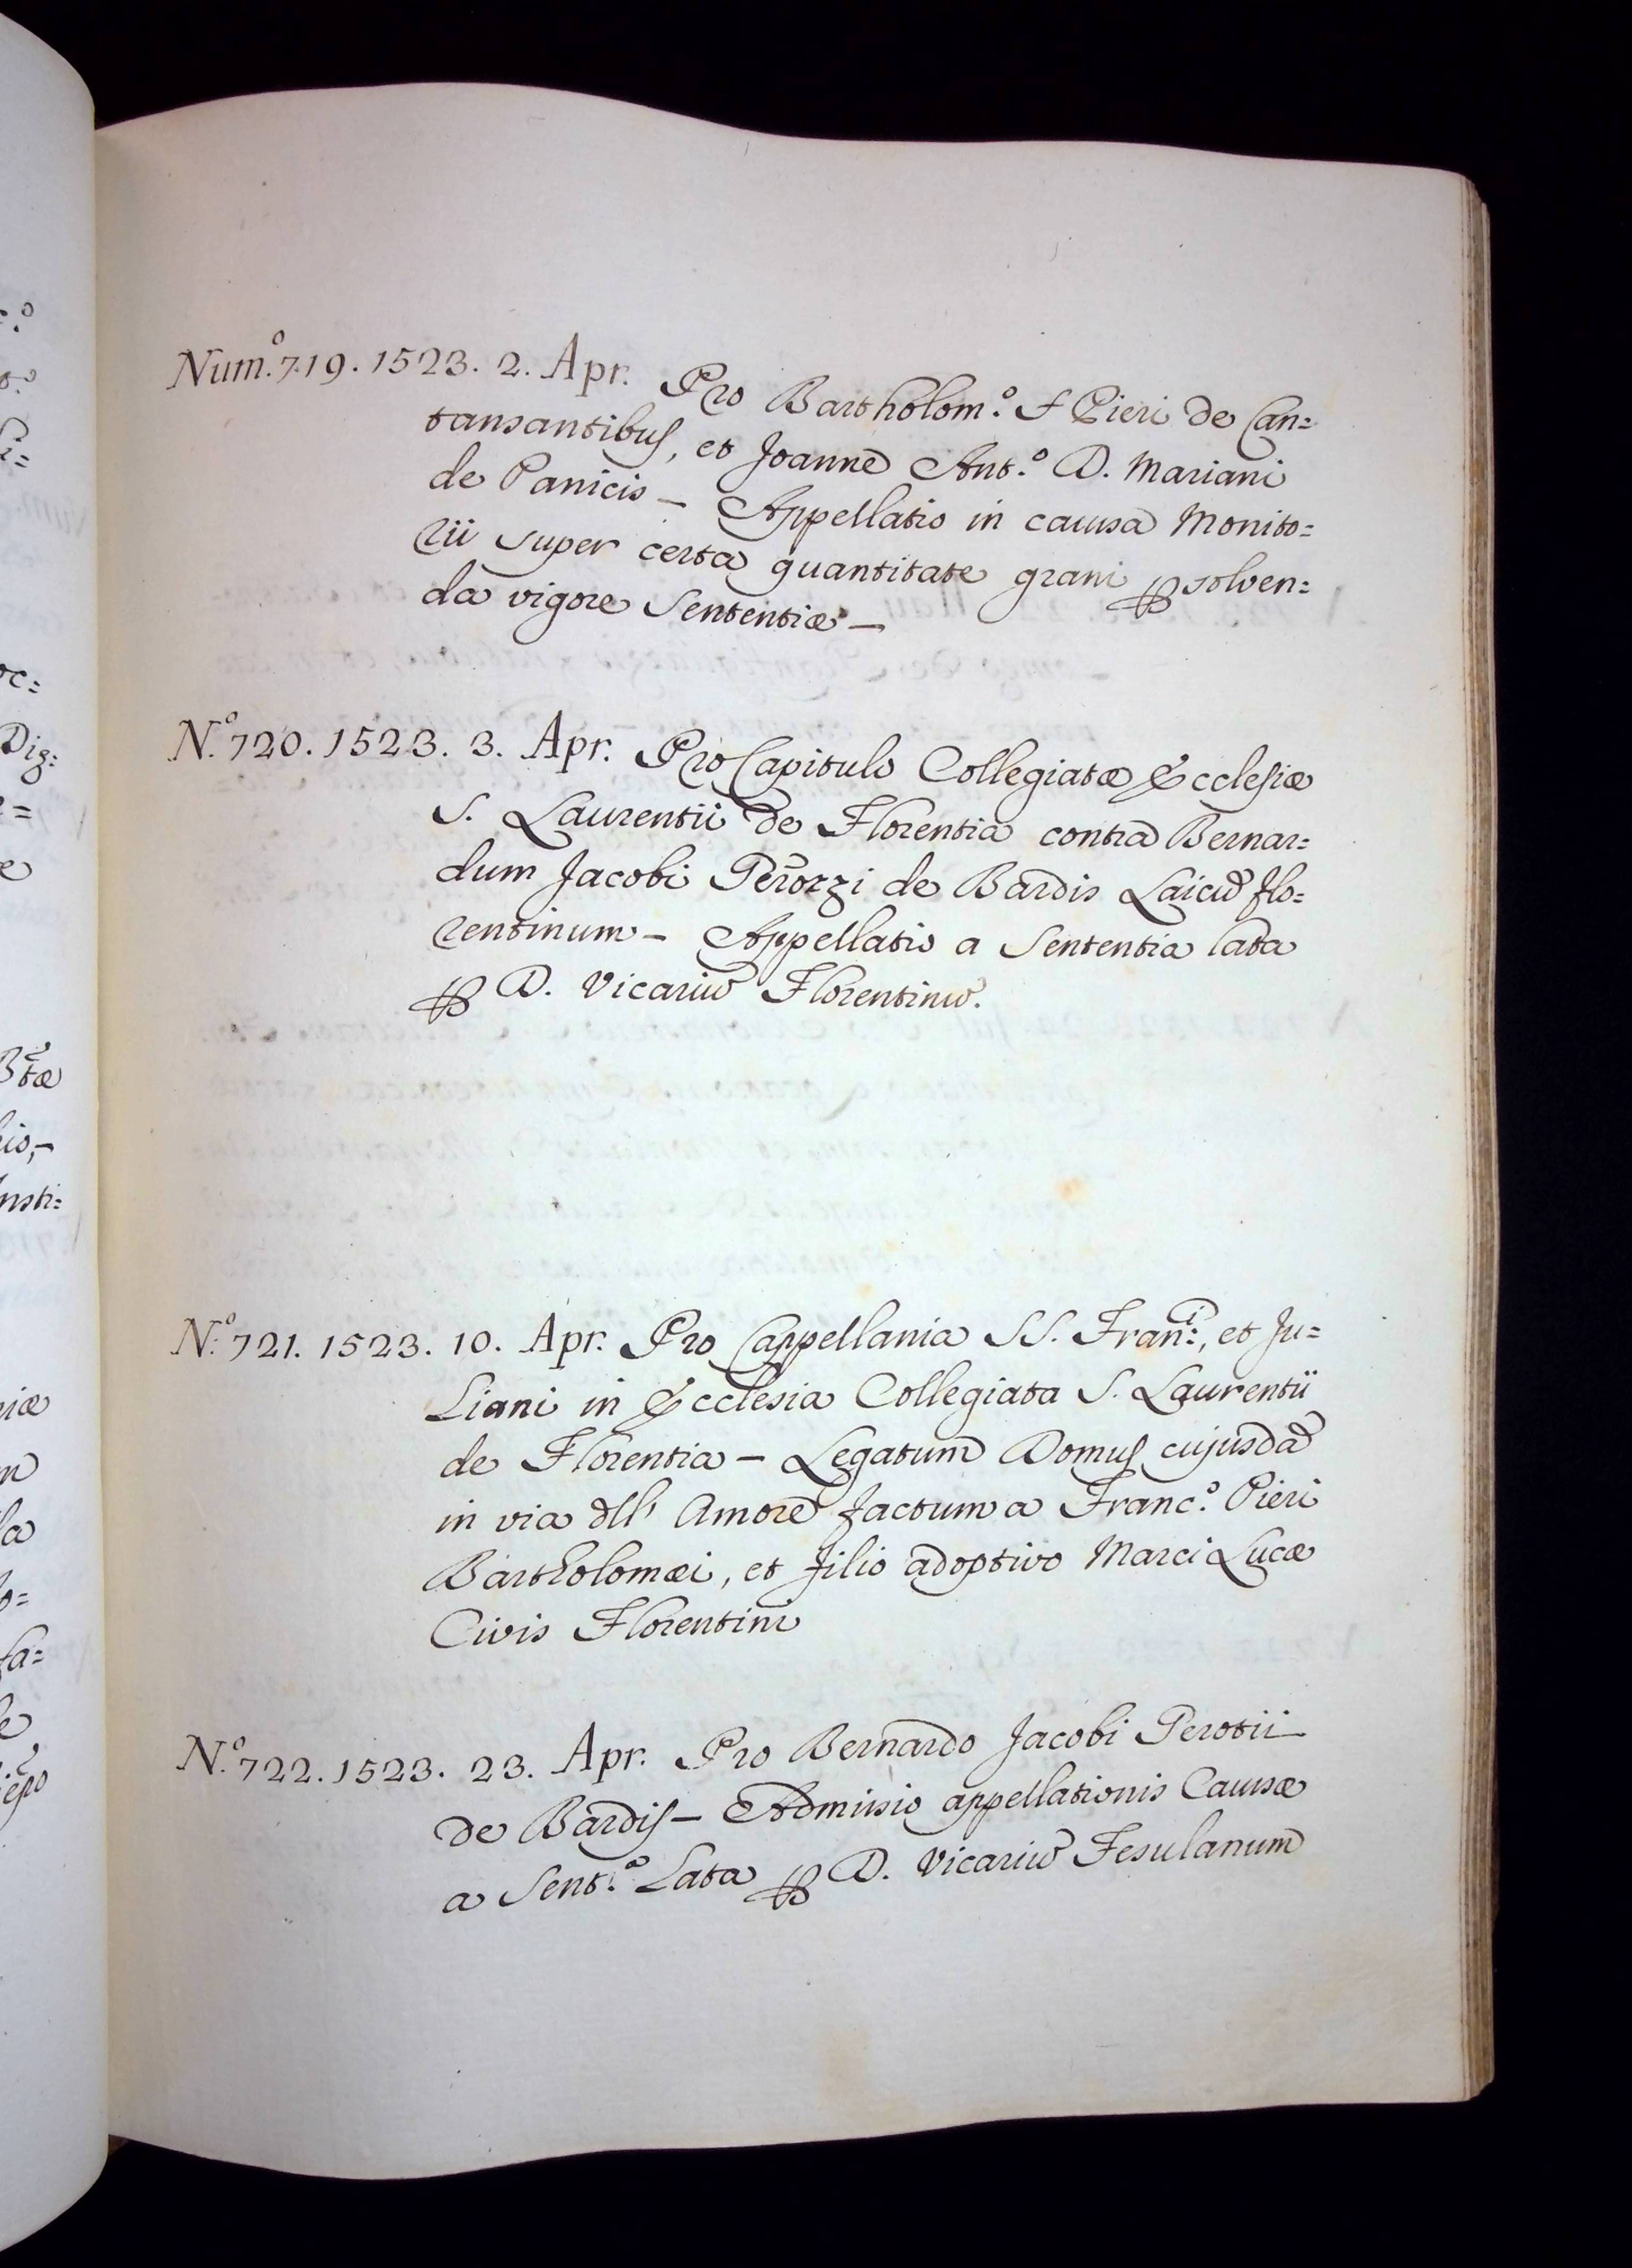 Num.º 719. 1523. 2. Apr. Pro Bartholom.º Pieri de Can=
tansantibus, et Joanne Ant.º D. Mariani
de Panicis – Appellatio in causa Monito=
rii super certa quantitate grani solven=
da vigore Sententiæ –
N.º 720. 1523. 3. Apr. Pro Capitulo Collegiatæ Ecclesiæ
S. Laurentii de Florentia contra Bernar=
dum Jacobi Perozzi de Bardis Laicũ flo=
rentinum – Appellatio a Sententia lata
ꝑ D. Vicariũ Florentinũ.
N.º 721. 1523. 10. Apr. Pro Cappellania SS. Fran:ⁱ, et Ju=
liani in Ecclesia Collegiata S. Laurentii
de Florentia – Legatum Domus cujusdã
in via dll' Amore factum a Franc.º Pieri
Bartholomæi, et filio adoptivo Marci Lucæ
Civis Florentini
N.º 722. 1523. 23. Apr. Pro Bernardo Jacobi Perotii
de Bardis – Admissio appellationis Causæ
a Sent.ª Lata ꝑ D. Vicariũ Fesulanum